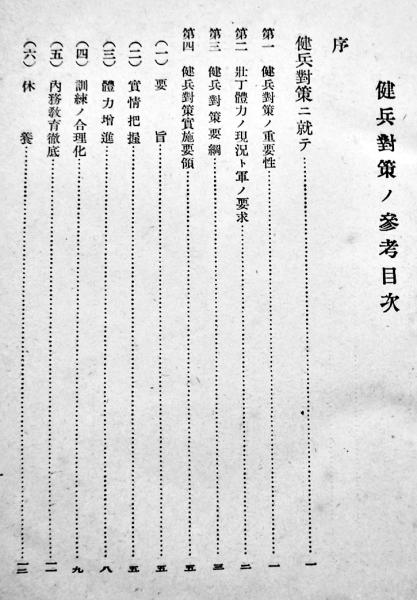 健兵對策ノ參考目次
序
健兵對策ニ就テ……………………一
第一　健兵對策ノ重要性……………………一
第二　壯丁體力ノ現況ト軍ノ要求……………………二
第三　健兵對策要綱……………………三
第四　健兵對策實施要領……………………五
(一)　要旨……………………五
(二)　實情把握……………………五
(三)　體力增進……………………八
(四)　訓練ノ合理化……………………九
(五)　內務敎育徹底……………………一一
(六)　休養……………………一三